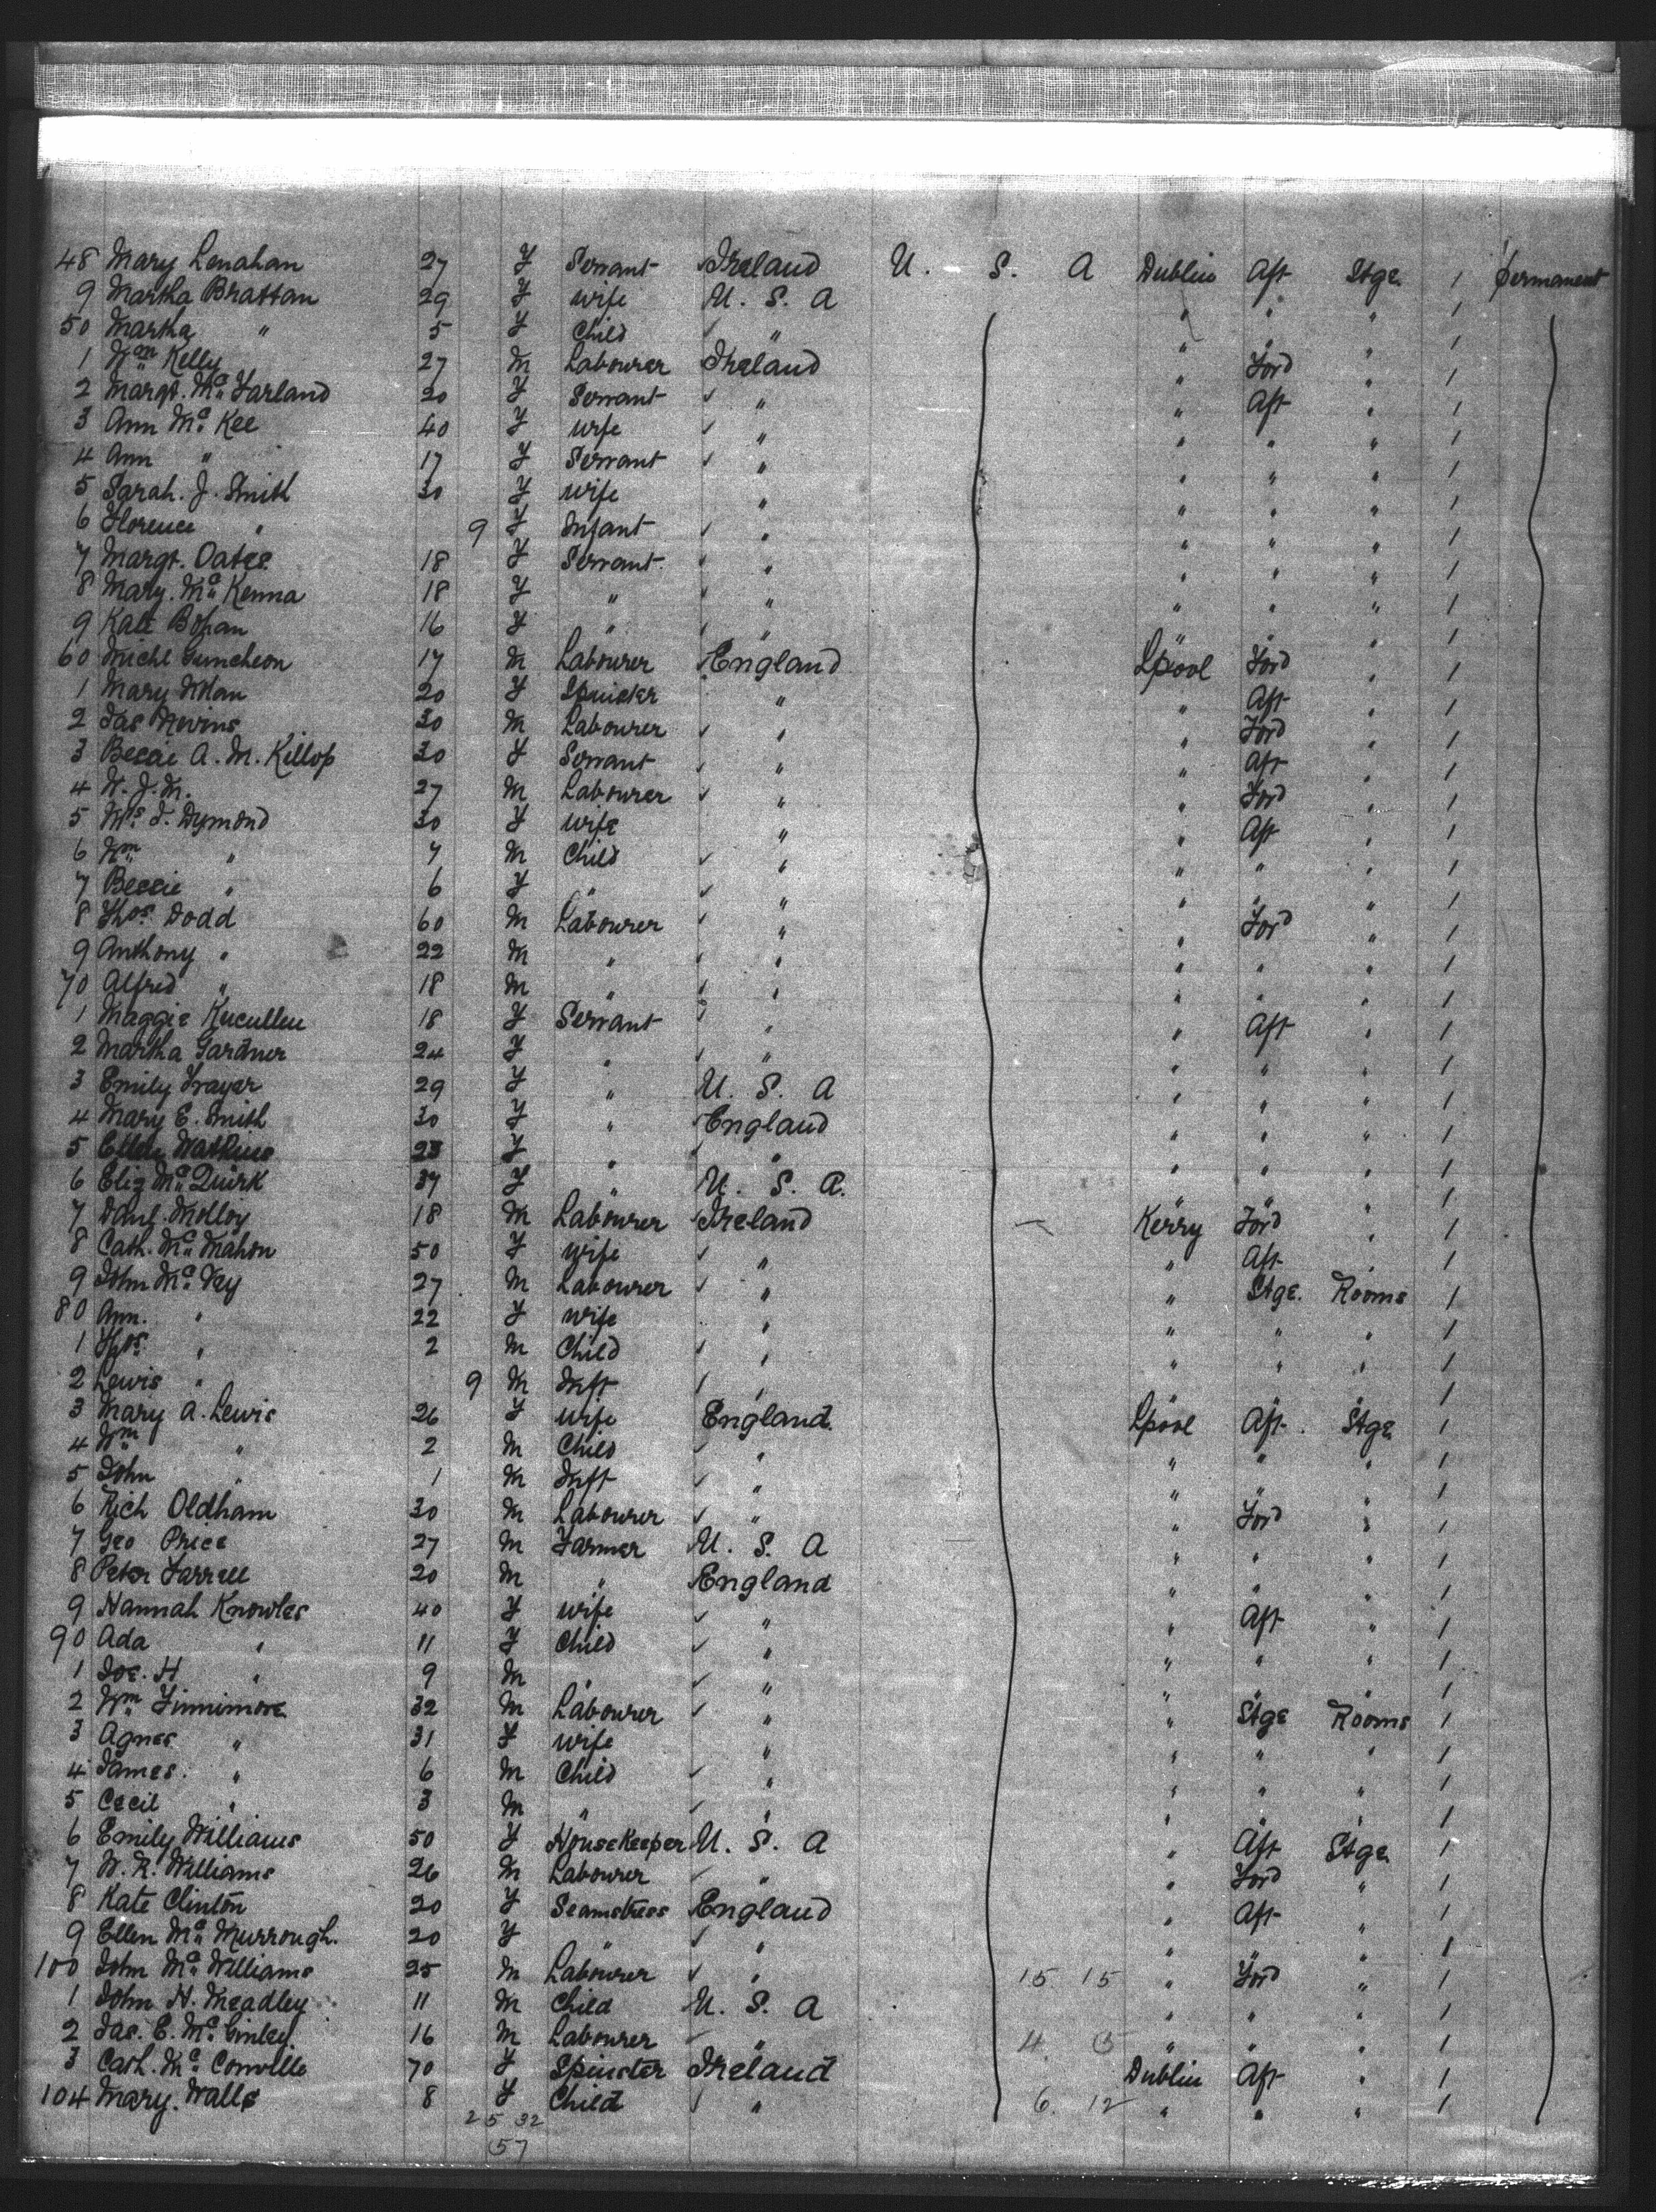 48 Mary Lenahan 27 F Servant Ireland U. S. A Dublin Aft Stge. 1 permanent
9 Martha Brattan 29 F wife U. S. A " " " 1
50 Martha " 5 F Child " " " " 1
1 Wm Kelly 27 M Labourer Ireland " Ford " 1
2 Margt. Mc Farland 20 F Servant " " Aft " 1
3 Ann Mc Kee 40 F wife " " " " 1
4 Ann " 17 F Servant " " " " 1
5 Sarah. J. Smith 30 F wife " " " " 1
6 Florence " 9 F Infant " " " " 1
7 Margt. Oates 18 F Servant " " " " 1
8 Mary. Mc Kenna 18 F " " " " " 1
9 Kate 16 F " " " 1
60 Michl Guncheon 17 M Labourer England Lpool Ford " 1
1 Mary Nolan 20 F Spinster " " Aft " 1
2 Jas Nevins 30 M Labourer " " Ford " 1
3 Bessie A. M. Killop 30 F Servant " " Aft " 1
4 W. J. M. 27 M Labourer " " Ford " 1
5 Mrs J. Dymond 30 F wife " " Aft " 1
6 Wm " 7 M Child " " " " 1
7 Bessie " 6 F " " " " " 1
8 Thos Dodd 60 M Labourer " " Ford " 1
9 Anthony " 22 M " " " " " 1
70 Alfred " 18 M " " " " " 1
1 Maggie 18 F Servant " " Aft " 1
2 Martha Gardner 24 F " " " " " 1
3 Emily 29 F " U. S. A " " " 1
4 Mary E. Smith 30 F " England " " " 1
5 Ellen Watkins 23 F " " " " " 1
6 Eliz Mc Quirk 37 F " U. S. A. " " " 1
7 Danl. Molloy 18 M Labourer Ireland Kerry Ford " 1
8 Cath. Mc Mahon 50 F wife " " Aft " 1
9 John Mc Vey 27 M Labourer " " Stge. Rooms 1
80 Ann. " 22 F wife " " " " 1
1 Thos. " 2 M Child " " " " 1
2 Lewis " 9 M Inft " 1
3 Mary A. Lewis 26 F wife England Lpool Aft. Stge 1
4 Wm " 2 M Child " " " " 1
5 John " 1 M Inft " " " " 1
6 Rich Oldham 30 M Labourer " " Ford " 1
7 Geo Price 27 M Farmer U. S. A " " " 1
8 Peter Farrell 20 M " England " " " 1
9 Hannah Knowles 40 F wife " " Aft " 1
90 Ada " 11 F Child " " " " 1
1 Jos. H " 9 M " " " " " 1
2 Wm Finnimore 32 M Labourer " " Stge Rooms 1
3 Agnes " 31 F wife " " " " 1
4 James. " 6 M Child " " " " 1
5 Cecil " 3 M " " " 1
6 Emily Williams 50 F HouseKeeper U. S. A " Aft Stge 1
7 W. R. Williams 26 M Labourer " " Ford " 1
8 Kate Clinton 20 F Seamstress England " Aft " 1
9 Ellen Mc Murrough. 20 F " " " " 1
100 John Mc Williams 25 M Labourer " 15 15 " Ford " 1
1 John H. Meadley 11 M Child U. S. A " " " 1
2 Jas. E. Mc Ginley 16 M Labourer " 4 " " " 1
3 Cath. Mc Conville 70 F Spinster Ireland Dublin Aft " 1
104 Mary. Walls 8 F Child " 6. 12 " " " 1
25 32
57